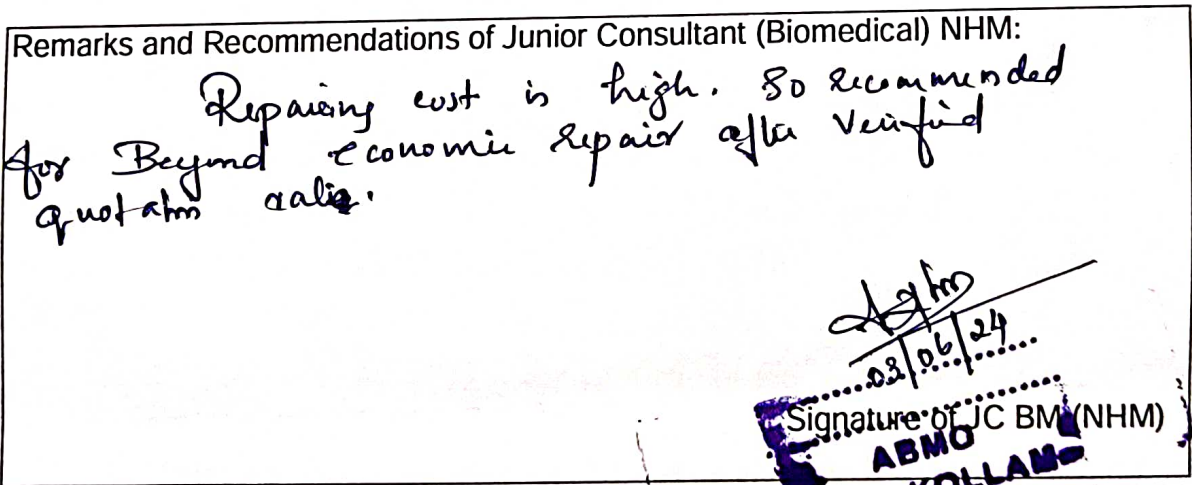 Remarks and Recommendations of Junior Consultant (Biomedical) NHM:
Repairing cost is high. So recommended
for Beyond economic repair after verified
quotation
03/06/24
Signature of JC BM (NHM)
ABMO
KOLLAM